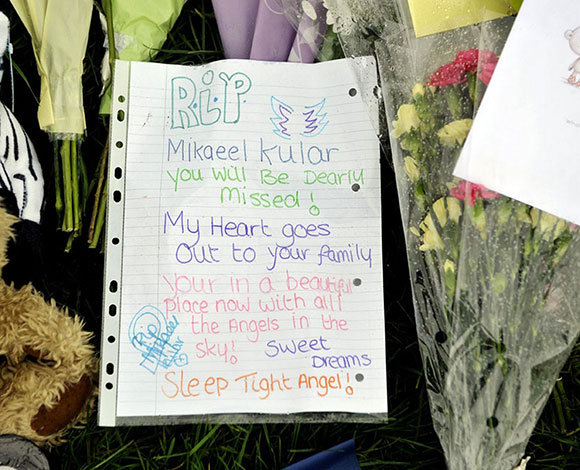 R.I.P
Mikaeel Kular
You will Be Dearly
Missed!
My Heart goes
Out to your family
Your in a beautiful
place now with all
the Angels in the
sky!
Sweet
Dreams
RIP
Mikaeel
Kular
Sleep Tight Angel!